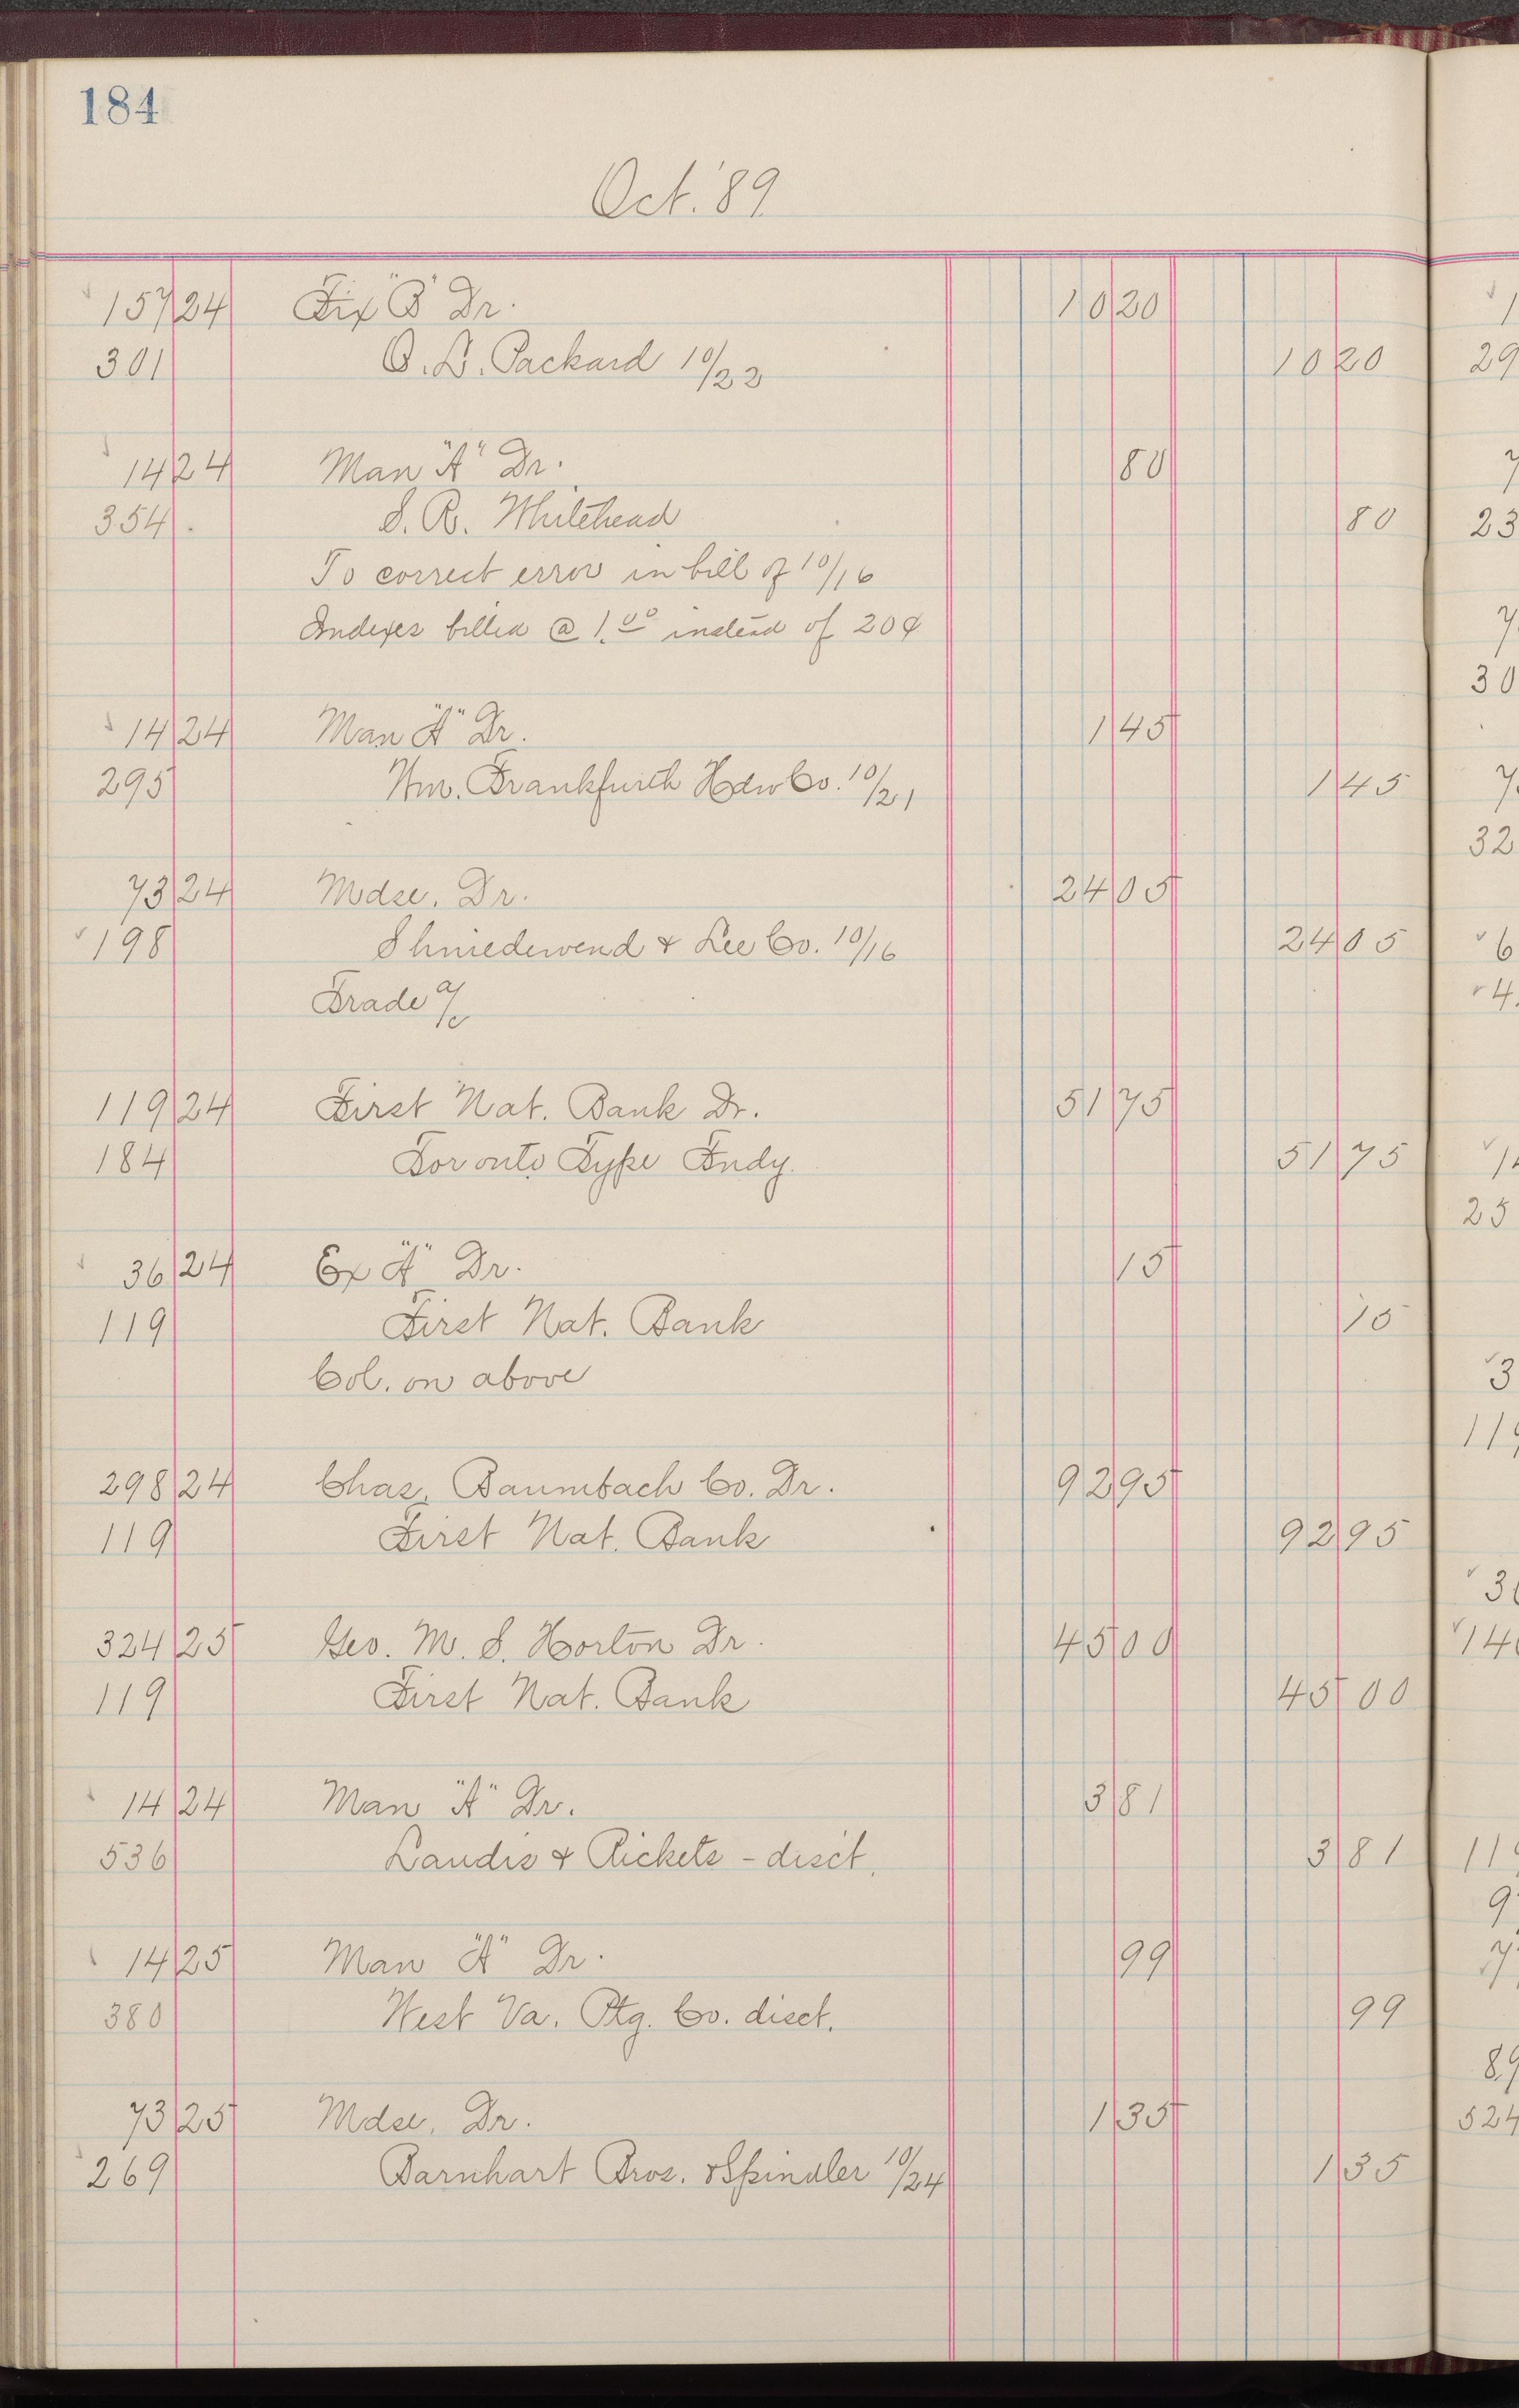 184
Oct. '89
157 24 Fix "B" Dr. 10 20
301 O. L. Packard 10/22 10 20
14 24 Man "A" Dr. 80
354 S. R. Whitehead 80
To correct error in bill of 10/16
Indexes billed @ 1.00 instead of 20¢
14 24 Man "A" Dr. 1 45
295 Wm. Frankfurth Hdw Co. 10/21 1 45
73 24 Mdse. Dr. 24 05
198 Shniedewend & Lee Co. 10/16 24 05
Trade a/c
119 24 First Nat. Bank Dr. 51 75
184 Toronto Type Fndy. 51 75
36 24 Ex "A" Dr. 15
119 First Nat. Bank 15
Col. on above
298 24 Chas. Baumbach Co. Dr. 92 95
119 First Nat. Bank 92 95
324 25 Geo. M. S. Horton Dr. 45 00
119 First Nat. Bank 45 00
14 24 Man "A" Dr. 3 81
536 Landis & Rickets - disct. 3 81
14 25 Man "A" Dr. 99
380 West Va. Ptg. Co. disct. 99
73 25 Mdse. Dr. 1 35
269 Barnhart Bros. & Spindler 10/24 1 35